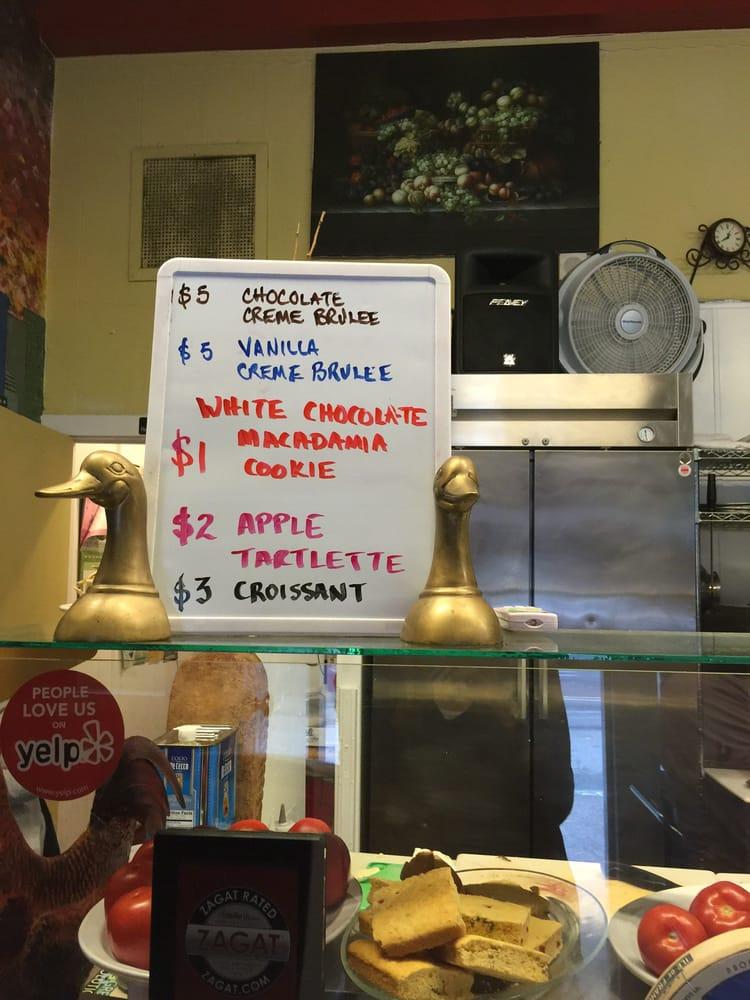 $5 CHOCOLATE
CREME BRULEE
$5 VANILLA
CREME BRULEE
WHITE CHOCOLATE
$1 MACADAMIA
COOKIE
$2 APPLE
TARTLETTE
$3 CROISSANT
PEAVEY
PEOPLE
LOVE US
ON
yelp
www.yelp.com
DE CECCO
ZAGAT RATED
ZAGAT
ZAGAT.COM